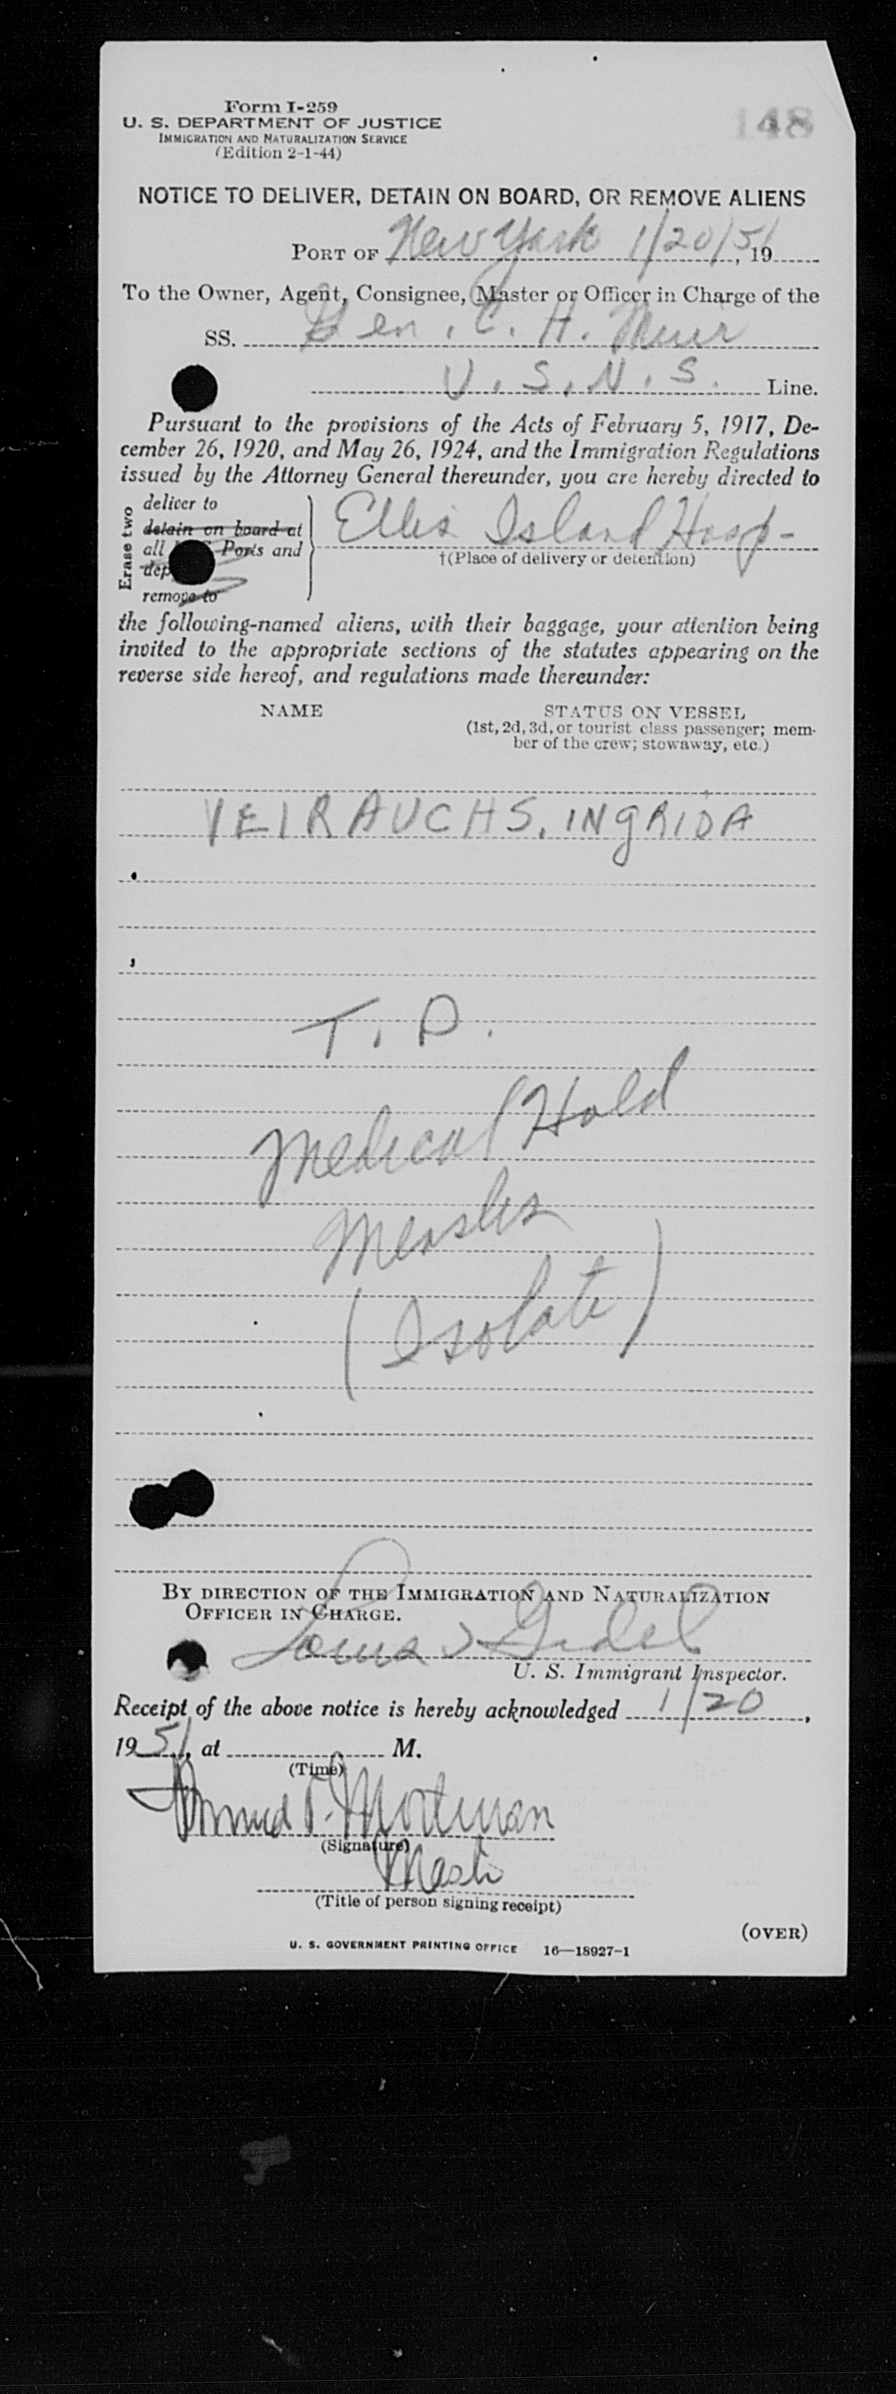 Form I-259
U. S. DEPARTMENT OF JUSTICE
IMMIGRATION AND NATURALIZATION SERVICE
(Edition 2-1-44)
148
NOTICE TO DELIVER, DETAIN ON BOARD, OR REMOVE ALIENS
PORT OF New York 1/20/51, 19
To the Owner, Agent, Consignee, Master or Officer in Charge of the
SS. Gen. C. H. Muir
U.S.N.S. Line.
Pursuant to the provisions of the Acts of February 5, 1917, De-
cember 26, 1920, and May 26, 1924, and the Immigration Regulations
issued by the Attorney General thereunder, you are hereby directed to
Erase two
deliver to
detain on board at
all Ports and
dep
remove to
Ellis Island Hosp-
†(Place of delivery or detention)
the following-named aliens, with their baggage, your attention being
invited to the appropriate sections of the statutes appearing on the
reverse side hereof, and regulations made thereunder:
NAME
STATUS ON VESSEL
(1st, 2d, 3d, or tourist class passenger; mem-
ber of the crew; stowaway, etc.)
VEIRAUCHS, INgRIDA
T. D.
Medical Hold
Measles
(Isolate)
BY DIRECTION OF THE IMMIGRATION AND NATURALIZATION
OFFICER IN CHARGE.
Louis
U. S. Immigrant Inspector.
Receipt of the above notice is hereby acknowledged 1/20,
1951, at M.
(Time)
Mortman
(Signature)
(Title of person signing receipt)
(OVER)
U. S. GOVERNMENT PRINTING OFFICE 16—18927-1